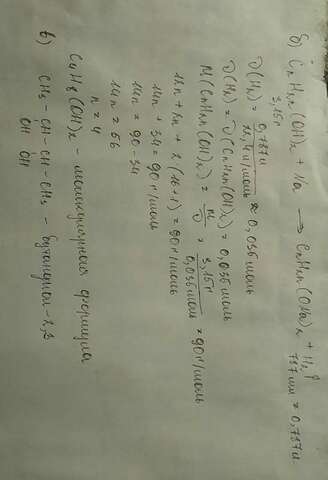 б) CnH2n(OH)2 + Na → CnH2n(ONa)2 + H2↑
3,15г 787 мл = 0,787 л
ν(H2) = 0,787л / 22,4 л/моль ≈ 0,035 моль
ν(H2) = ν(CnH2n(OH)2) = 0,035 моль
M(CnH2n(OH)2) = m/ν = 3,15г / 0,035 моль = 90 г/моль
12n + 2n + 2(16+1) = 90 г/моль
14n + 34 = 90 г/моль
14n = 90 - 34
14n = 56
n = 4
C4H8(OH)2 - молекулярная формула
в) CH3 - CH - CH - CH3 - бутандиол-2,3
OH OH